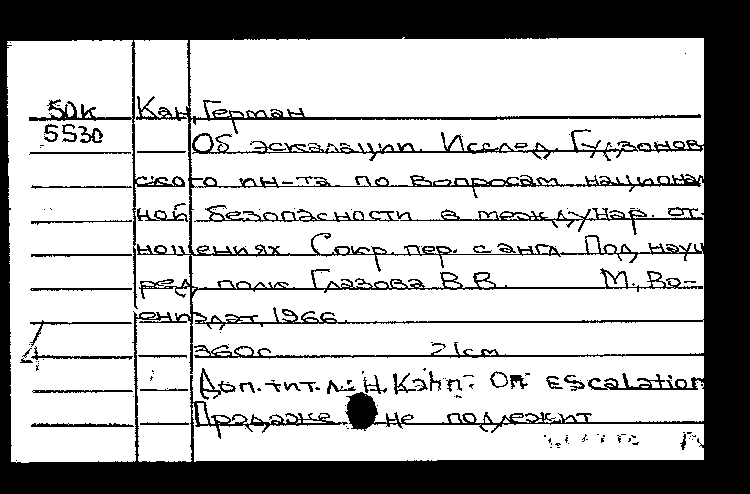 50К Кан, Герман
5530 Об эскалации. Исслед. Гудзонов-
ского ин-та по вопросам национал
ной безопасности в междунар. от-
ношениях. Сокр. пер. с англ. Под науч
ред. полк. Глазова В.В. М., Во-
ениздат, 1966.
360с 21см
4
Доп. тит. л.: H. Kahn: On escalation
Продаже не подлежит